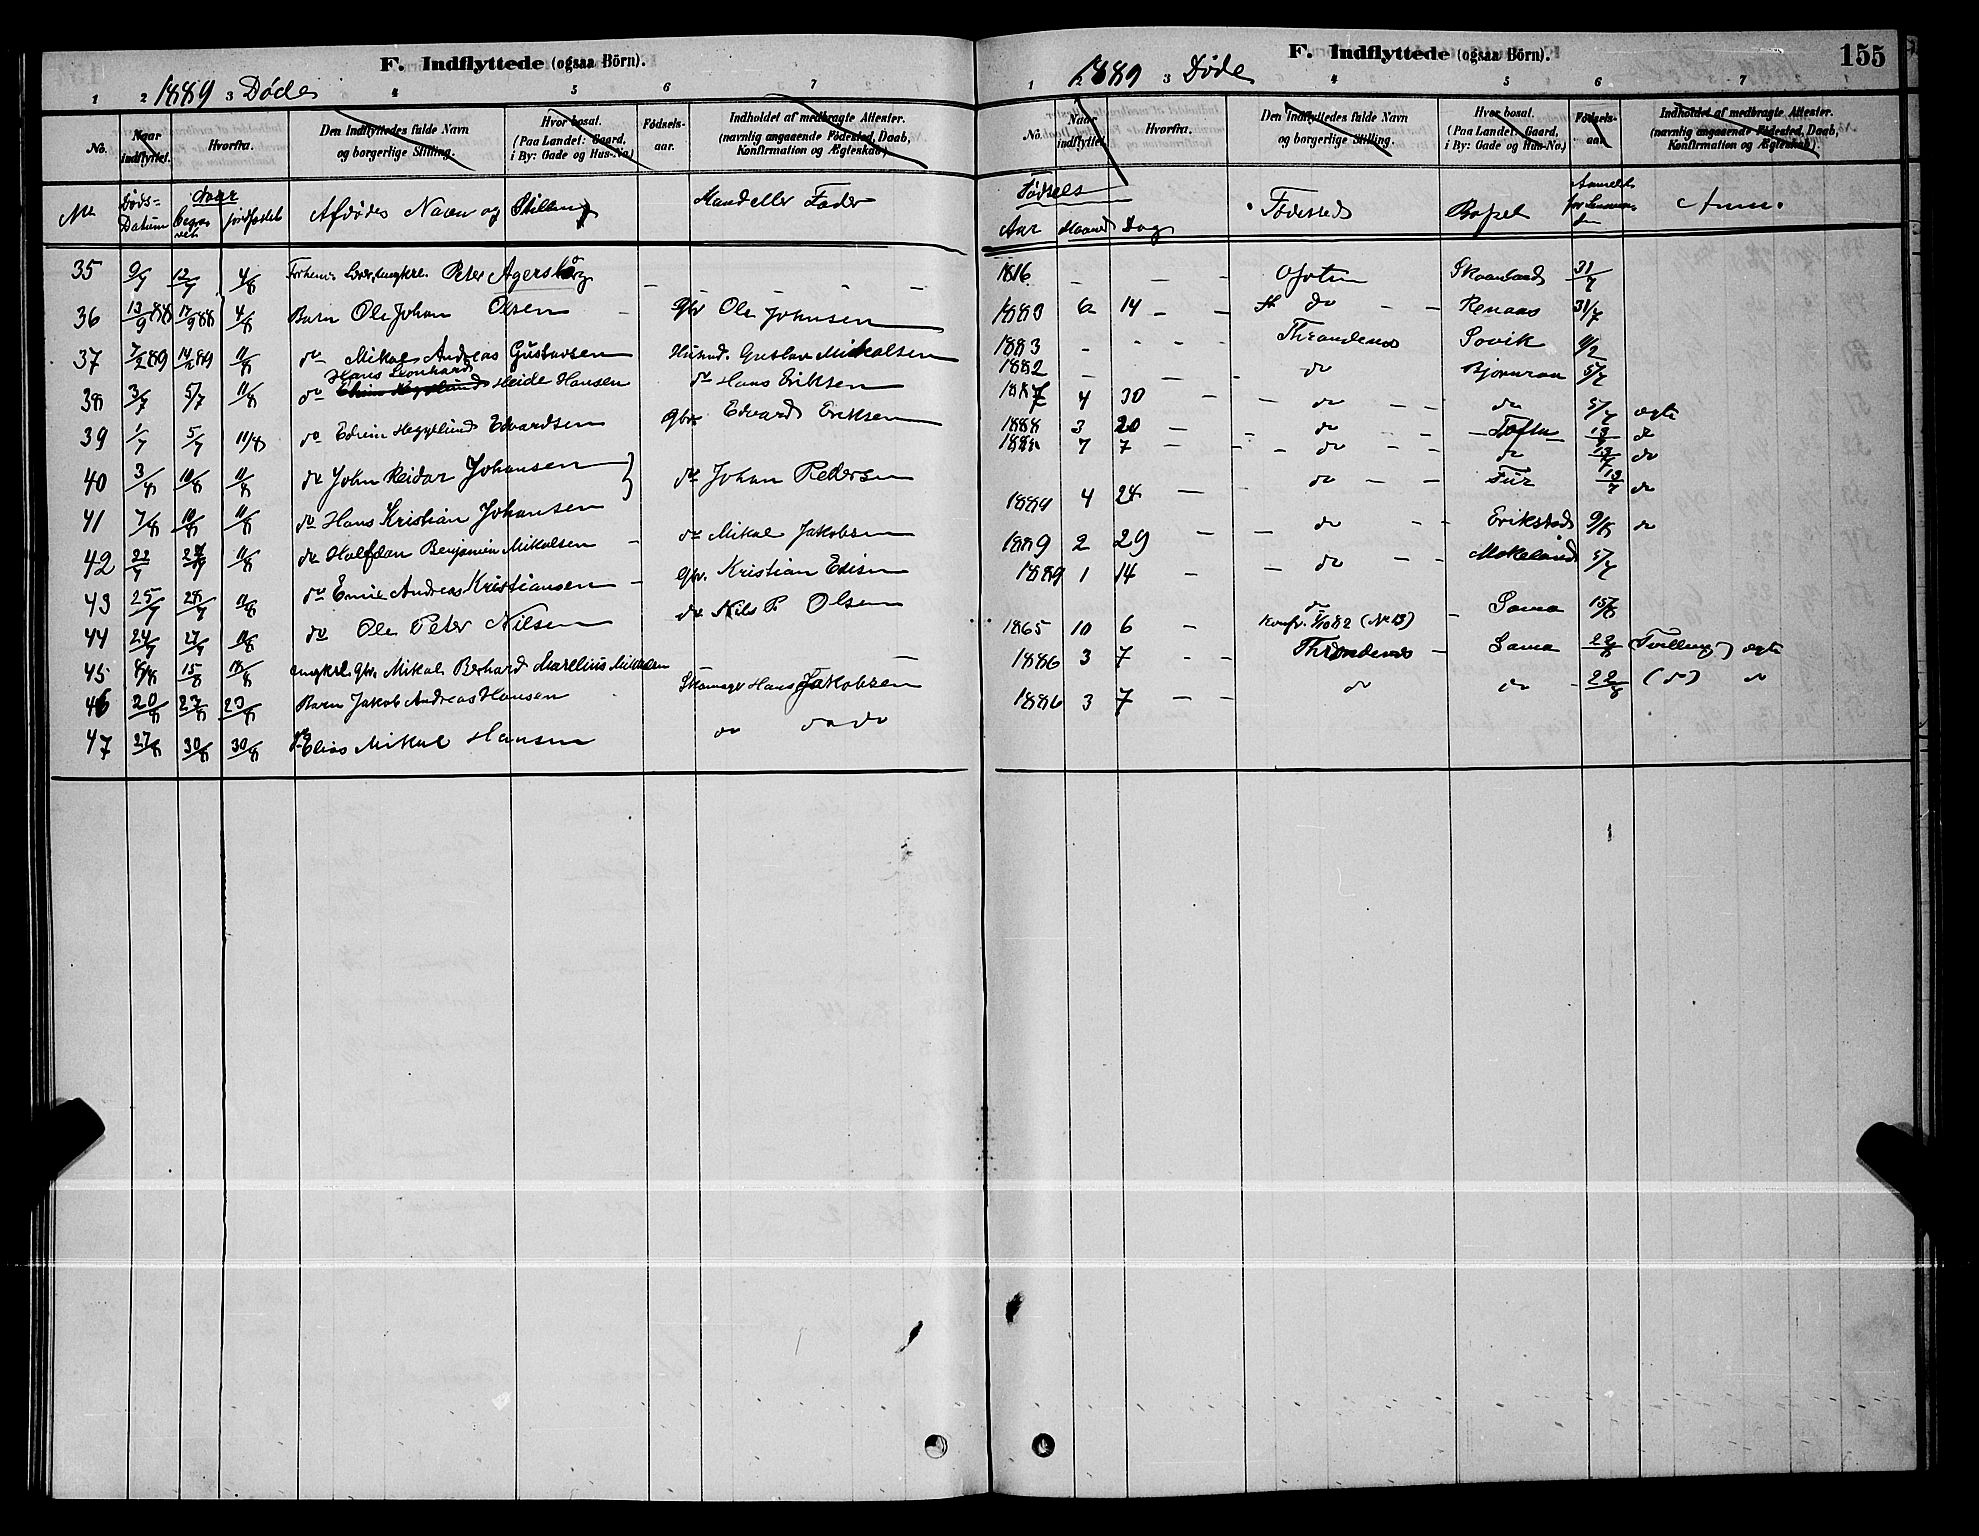 F. Indflyttede (ogsaa Börn).
1889 Døde
1 2 3 4 5 6 7
No. Naar indflyttet. Hvorfra. Den Indflyttedes fulde Navn og borgerlige Stilling. Hvor bosat. (Paa Landet: Gaard, i By: Gade og Hus-No.) Fødselsaar. Indholdet af medbragte Attester. (navnlig angaaende Fødested, Daab, Konfirmation og Ægteskab)
No Døds-Datum Naar Begravet Jordfæstet Afdødes Navn og Stilling Mand eller Fader
35 9/7 12/7 4/8 Peter Agersborg
36 13/9 88 17/9 88 4/8 Barn Ole Johan Olsen – Gbr Ole Johnsen
37 7/2 89 14/2 89 11/8 do Mikal Andreas Gustavsen Husmd. Gustav Mikalsen
Hans Leonhard
38 3/7 5/7 11/8 do Heide Hansen do Hans Eriksen
39 1/7 5/7 11/8 do Edvin Heggelund Edvardsen Gbr. Edvard Eriksen
40 3/8 10/8 11/8 do John Reidar Johansen do Johan Pedersen
41 7/8 10/8 11/8 do Hans Kristian Johansen
42 22/7 27/7 11/8 do Halfdan Benjamin Mikalsen – do Mikal Jakobsen
43 25/7 28/7 11/8 do Emil Andreas Kristiansen – Gbr. Kristian Edisen
44 24/7 27/7 11/8 do Ole Peter Nilsen do Nils P. Olsen
45 8/8 15/8 18/8 ungkrl Gbr. Mikal Berhard Marelius Mikalsen –
46 20/8 23/8 23/8 Barn Jakob Andreas Hansen Skomager Hans Jakobsen
47 27/8 30/8 30/8 do Elias Mikal Hansen do do do
F. Indflyttede (ogsaa Börn). 155
1889 Døde
1 3 4 5 6 7
No. Naar indflyttet. Hvorfra. Den Indflyttedes fulde Navn og borgerlige Stilling. Hvor bosat. (Paa Landet: Gaard, i By: Gade og Hus-No.) Fødselsaar. Indholdet af medbragte Attester. (navnlig angaaende Fødested, Daab, Konfirmation og Ægteskab).
Fødsels Aar Maaned Dag Fødested Bopel Anmeldt for Anm.
1816 – – – Ofoten Skaanland 31/7
1880 6 14 – – do – – Renaas 31/7
1883 – – – – Throndenes Sovik 9/2
1882 – – – do Bjørnraa 5/7
1887 4 30 – – do – – do 5/7 ægte
1888 3 20 – – do – Toften 13/7 do
1888 7 7 – – do – do 13/7 do
1889 4 24 – – do – – 13/7 do
1889 2 29 – – do – – Erikstad 9/8 do
1889 1 14 – – do – Mokeland 5/7
do – Sama 15/8
1865 10 6 – Konfr. 1/10 82 (No 13)
1886 3 7 – – Throndenes – Sama 22/8 Tvilling, ægte
1886 3 7 – – do do – 22/8 (do) do